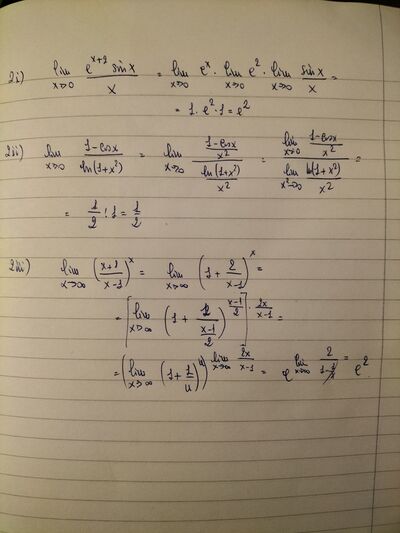 2i) lim x→0 e^(x+2) sin x / x = lim x→0 e^x · lim x→0 e^2 · lim x→0 sin x / x =
= 1 · e^2 · 1 = e^2
2ii) lim x→0 (1-cos x) / ln(1+x^2) = lim x→0 ((1-cos x)/x^2) / (ln(1+x^2)/x^2) = (lim x→0 (1-cos x)/x^2) / (lim x^2→0 ln(1+x^2)/x^2) =
= 1/2 : 1 = 1/2
2iii) lim x→∞ ((x+1)/(x-1))^x = lim x→∞ (1 + 2/(x-1))^x =
= [lim x→∞ (1 + 1/((x-1)/2))^((x-1)/2)] · 2x/(x-1) =
= (lim x→∞ (1 + 1/u)^u)^(lim x→∞ 2x/(x-1)) = e^(lim x→∞ 2/(1-1/x)) = e^2